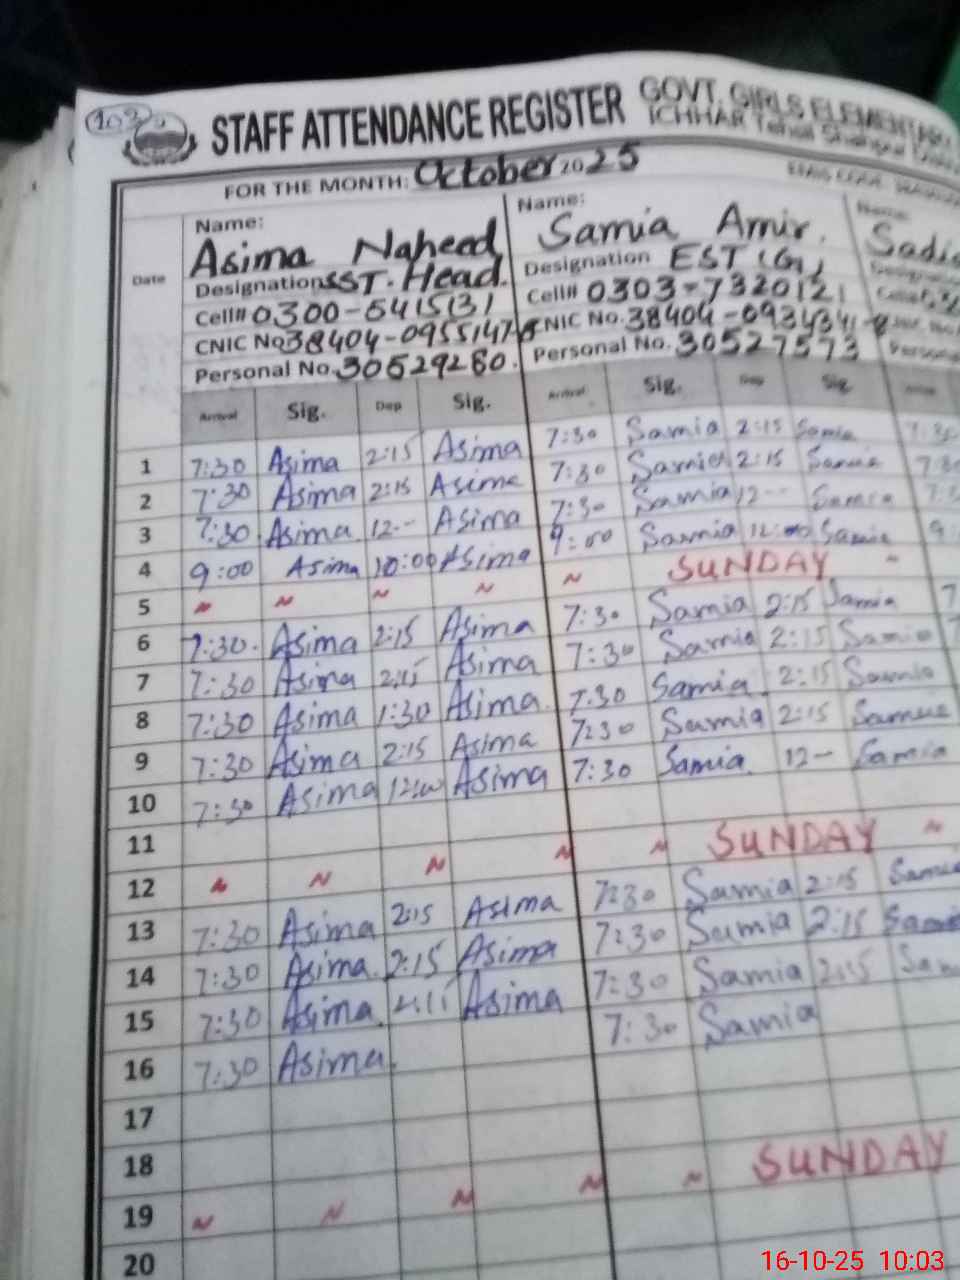 103
STAFF ATTENDANCE REGISTER GOVT. GIRLS ELEMENTARY
ICHHAR Tehsil Shahpur
FOR THE MONTH: October 2025
Date
Name: Name:
Asima Naheed Samia Amir. Sadi
Designation SST. Head. Designation EST (G)
Cell# 0300-5415131 Cell# 0303-7320121
CNIC No 38404-0955147-8 CNIC No. 38404-0934341-8
Personal No. 30529280. Personal No. 30527573 Persona
Arrival Sig. Dep Sig. Arrival Sig. Dep Sig
1 7:30 Asima 2:15 Asima 7:30 Samia 2:15 Samia 7:30
2 7:30 Asima 2:15 Asima 7:30 Samia 2:15 Samia
3 7:30. Asima 12-- Asima 7:30 Samia 12-- Samia
4 9:00 Asima 10:00 Asima 9:00 Samia 12:00 Samia 9:
5 ~ ~ ~ ~ ~ SUNDAY -
6 7:30. Asima 2:15 Asima 7:30 Samia 2:15 Samia 7
7 7:30 Asima 2:15 Asima 7:30 Samia 2:15 Samia
8 7:30 Asima 1:30 Asima. 7:30 Samia. 2:15 Samia
9 7:30 Asima 2:15 Asima 7:30 Samia 2:15 Samia
10 7:30 Asima 12:00 Asima 7:30 Samia. 12- Samia
11
12 ~ ~ ~ ~ ~ SUNDAY ~
13 7:30 Asima 2:15 Asima 7:30 Samia 2:15 Samia
14 7:30 Asima. 2:15 Asima 7:30 Samia 2:15 Samia
15 7:30 Asima. 2:15 Asima 7:30 Samia 2:15 Sam
16 7:30 Asima. 7:30 Samia
17
18
19 ~ ~ ~ ~ ~ SUNDAY
20
16-10-25 10:03